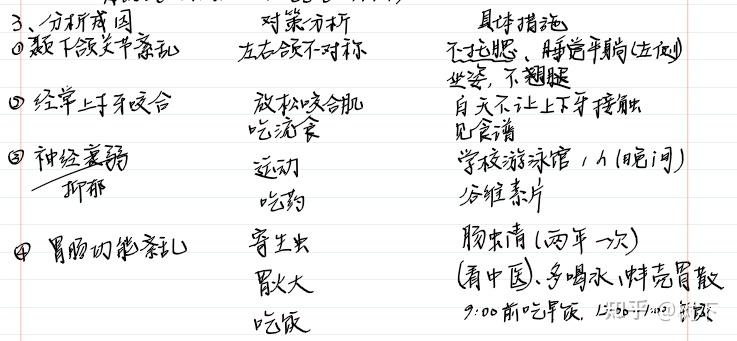 3、分析成因 对策分析 具体措施
① 颞下颌关节紊乱 左右颌不对称 不托腮、睡觉平躺(左侧)
坐姿,不翘腿
② 经常上下牙咬合 放松咬合肌 白天不让上下牙接触
吃流食 见食谱
③ 神经衰弱 运动 学校游泳馆1h(晚间)
抑郁 吃药 谷维素片
④ 胃肠功能紊乱 寄生虫 肠虫清(两年一次)
胃火大 (看中医)、多喝水、蚌壳胃散
吃饭 9:00前吃早饭,
知乎